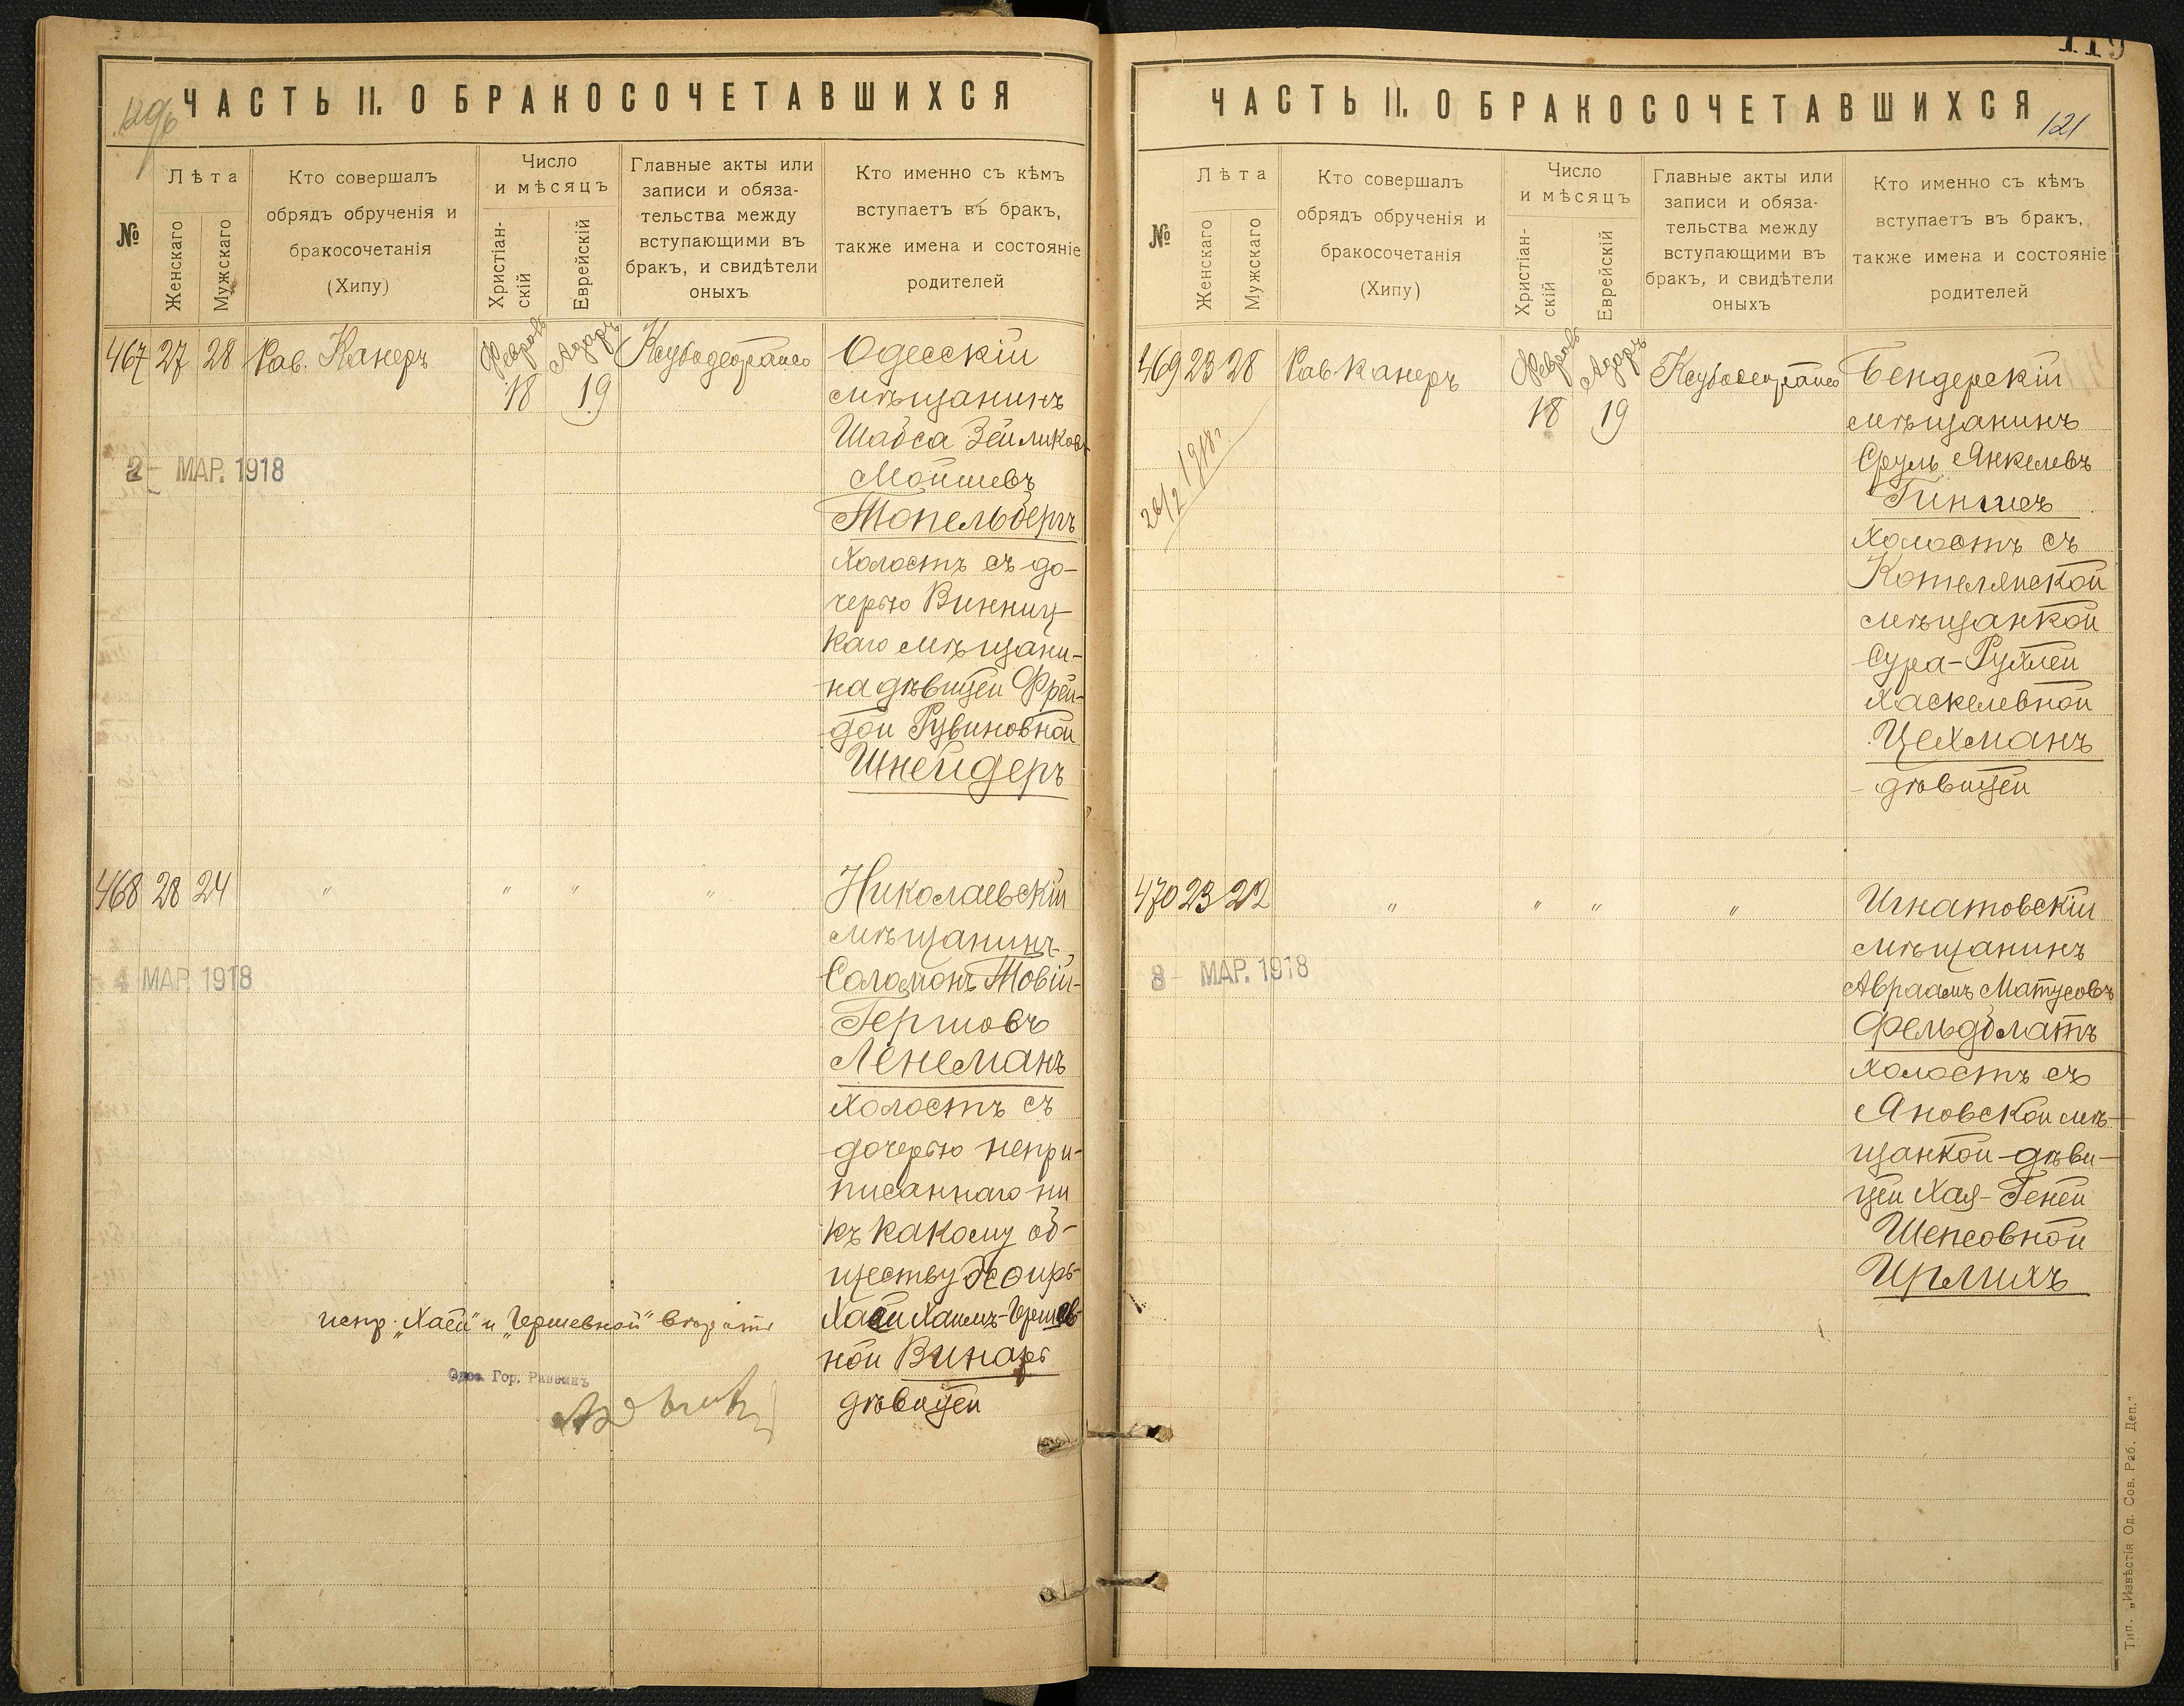 ЧАСТЬ II. О БРАКОСОЧЕТАВШИХСЯ
№
Лѣта
Женскаго
Мужскаго
Кто совершалъ
обрядъ обрученія и
бракосочетанія
(Хипу)
Число
и мѣсяцъ
Христіан-
скій
Еврейскій
Главные акты или
записи и обяза-
тельства между
вступающими въ
бракъ, и свидѣтели
оныхъ
Кто именно съ кѣмъ
вступаетъ въ бракъ,
также имена и состояніе
родителей
467 27 28 Рав. Канеръ
Февраль 18
Адаръ 19
Одесскій
мѣщанинъ
Шабса Зейликовъ
Мойшевъ
Топельбергъ
холостъ съ до-
черью Винниц-
каго мѣщани-
на дѣвицей Фрей-
дой Рувиновной
Шнейдеръ
2- МАР. 1918
468 28 24 " " " "
Николаевскій
мѣщанинъ
Соломонъ Товій-
Гершовъ
Ленеманъ
холостъ съ
дочерью непри-
писаннаго ни
къ какому об-
ществу
Хаей Хаимъ-Гершев-
ной Винаръ
дѣвицей
4 МАР. 1918
испр. „Хаей" и „Гершевной" вѣрить
Одес. Гор. Раввинъ
119
ЧАСТЬ II. О БРАКОСОЧЕТАВШИХСЯ
121
№
Лѣта
Женскаго
Мужскаго
Кто совершалъ
обрядъ обрученія и
бракосочетанія
(Хипу)
Число
и мѣсяцъ
Христіан-
скій
Еврейскій
Главные акты или
записи и обяза-
тельства между
вступающими въ
бракъ, и свидѣтели
оныхъ
Кто именно съ кѣмъ
вступаетъ въ бракъ,
также имена и состояніе
родителей
469 23 28 Рав Канеръ
Февраль 18
Адаръ 19
Бендерскій
мѣщанинъ
Сруль Янкелевъ
холостъ съ
Котелянской
мѣщанкой
Сура-Рухлей
Хаскелевной
Цехманъ
дѣвицей
26/2 1918г.
470 23 22 " " " "
Игнатовскій
мѣщанинъ
Авраамъ Матусовъ
Фельдблатъ
холостъ съ
Яновской мѣ-
щанкой-дѣви-
цей Хая-Геней
Шепсовной
Ирлихъ
8- МАР. 1918
Тип. „Извѣстія Од. Сов. Раб. Деп."